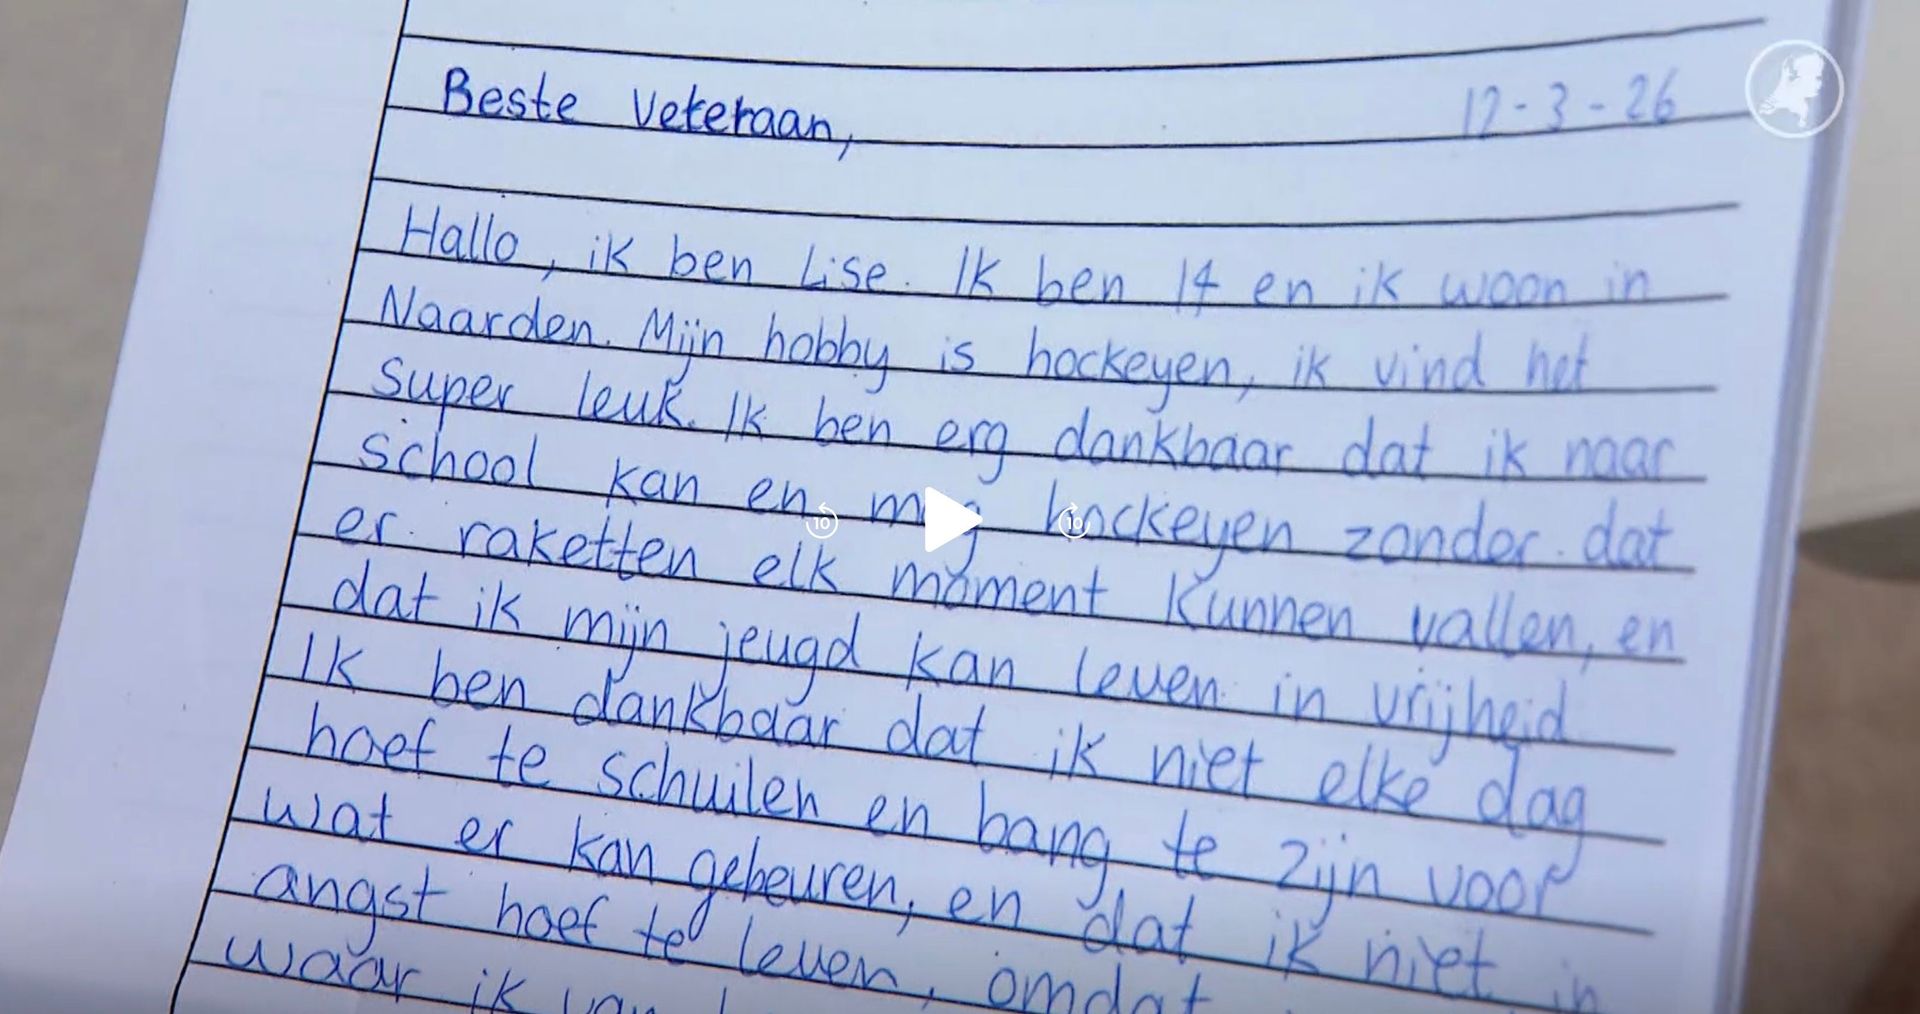 Beste Veteraan,
12-3-26
Hallo, ik ben Lise. Ik ben 14 en ik woon in
Naarden. Mijn hobby is hockeyen, ik vind het
super leuk. Ik ben erg dankbaar dat ik naar
school kan en mag hockeyen zonder dat
er raketten elk moment kunnen vallen, en
dat ik mijn jeugd kan leven in vrijheid
Ik ben dankbaar dat ik niet elke dag
hoef te schuilen en bang te zijn voor
wat er kan gebeuren, en dat ik niet in
angst hoef te leven, omdat
waar ik van
10
10